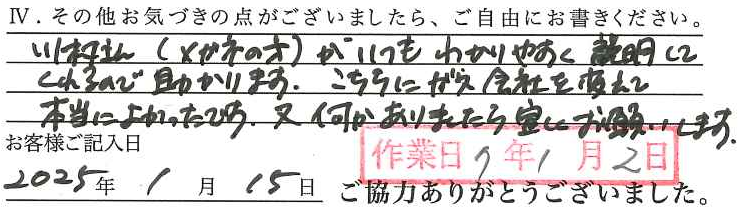 Ⅳ．その他お気づきの点がございましたら、ご自由にお書きください。
川村さん（メガネの方）がいつもわかりやすく説明して
くれるので助かります. こちらにガス会社を変えて
本当によかったです. 又何かありましたら宜しくお願いします.
お客様ご記入日
作業日 7年1月2日
2025年 1月 15日 ご協力ありがとうございました。